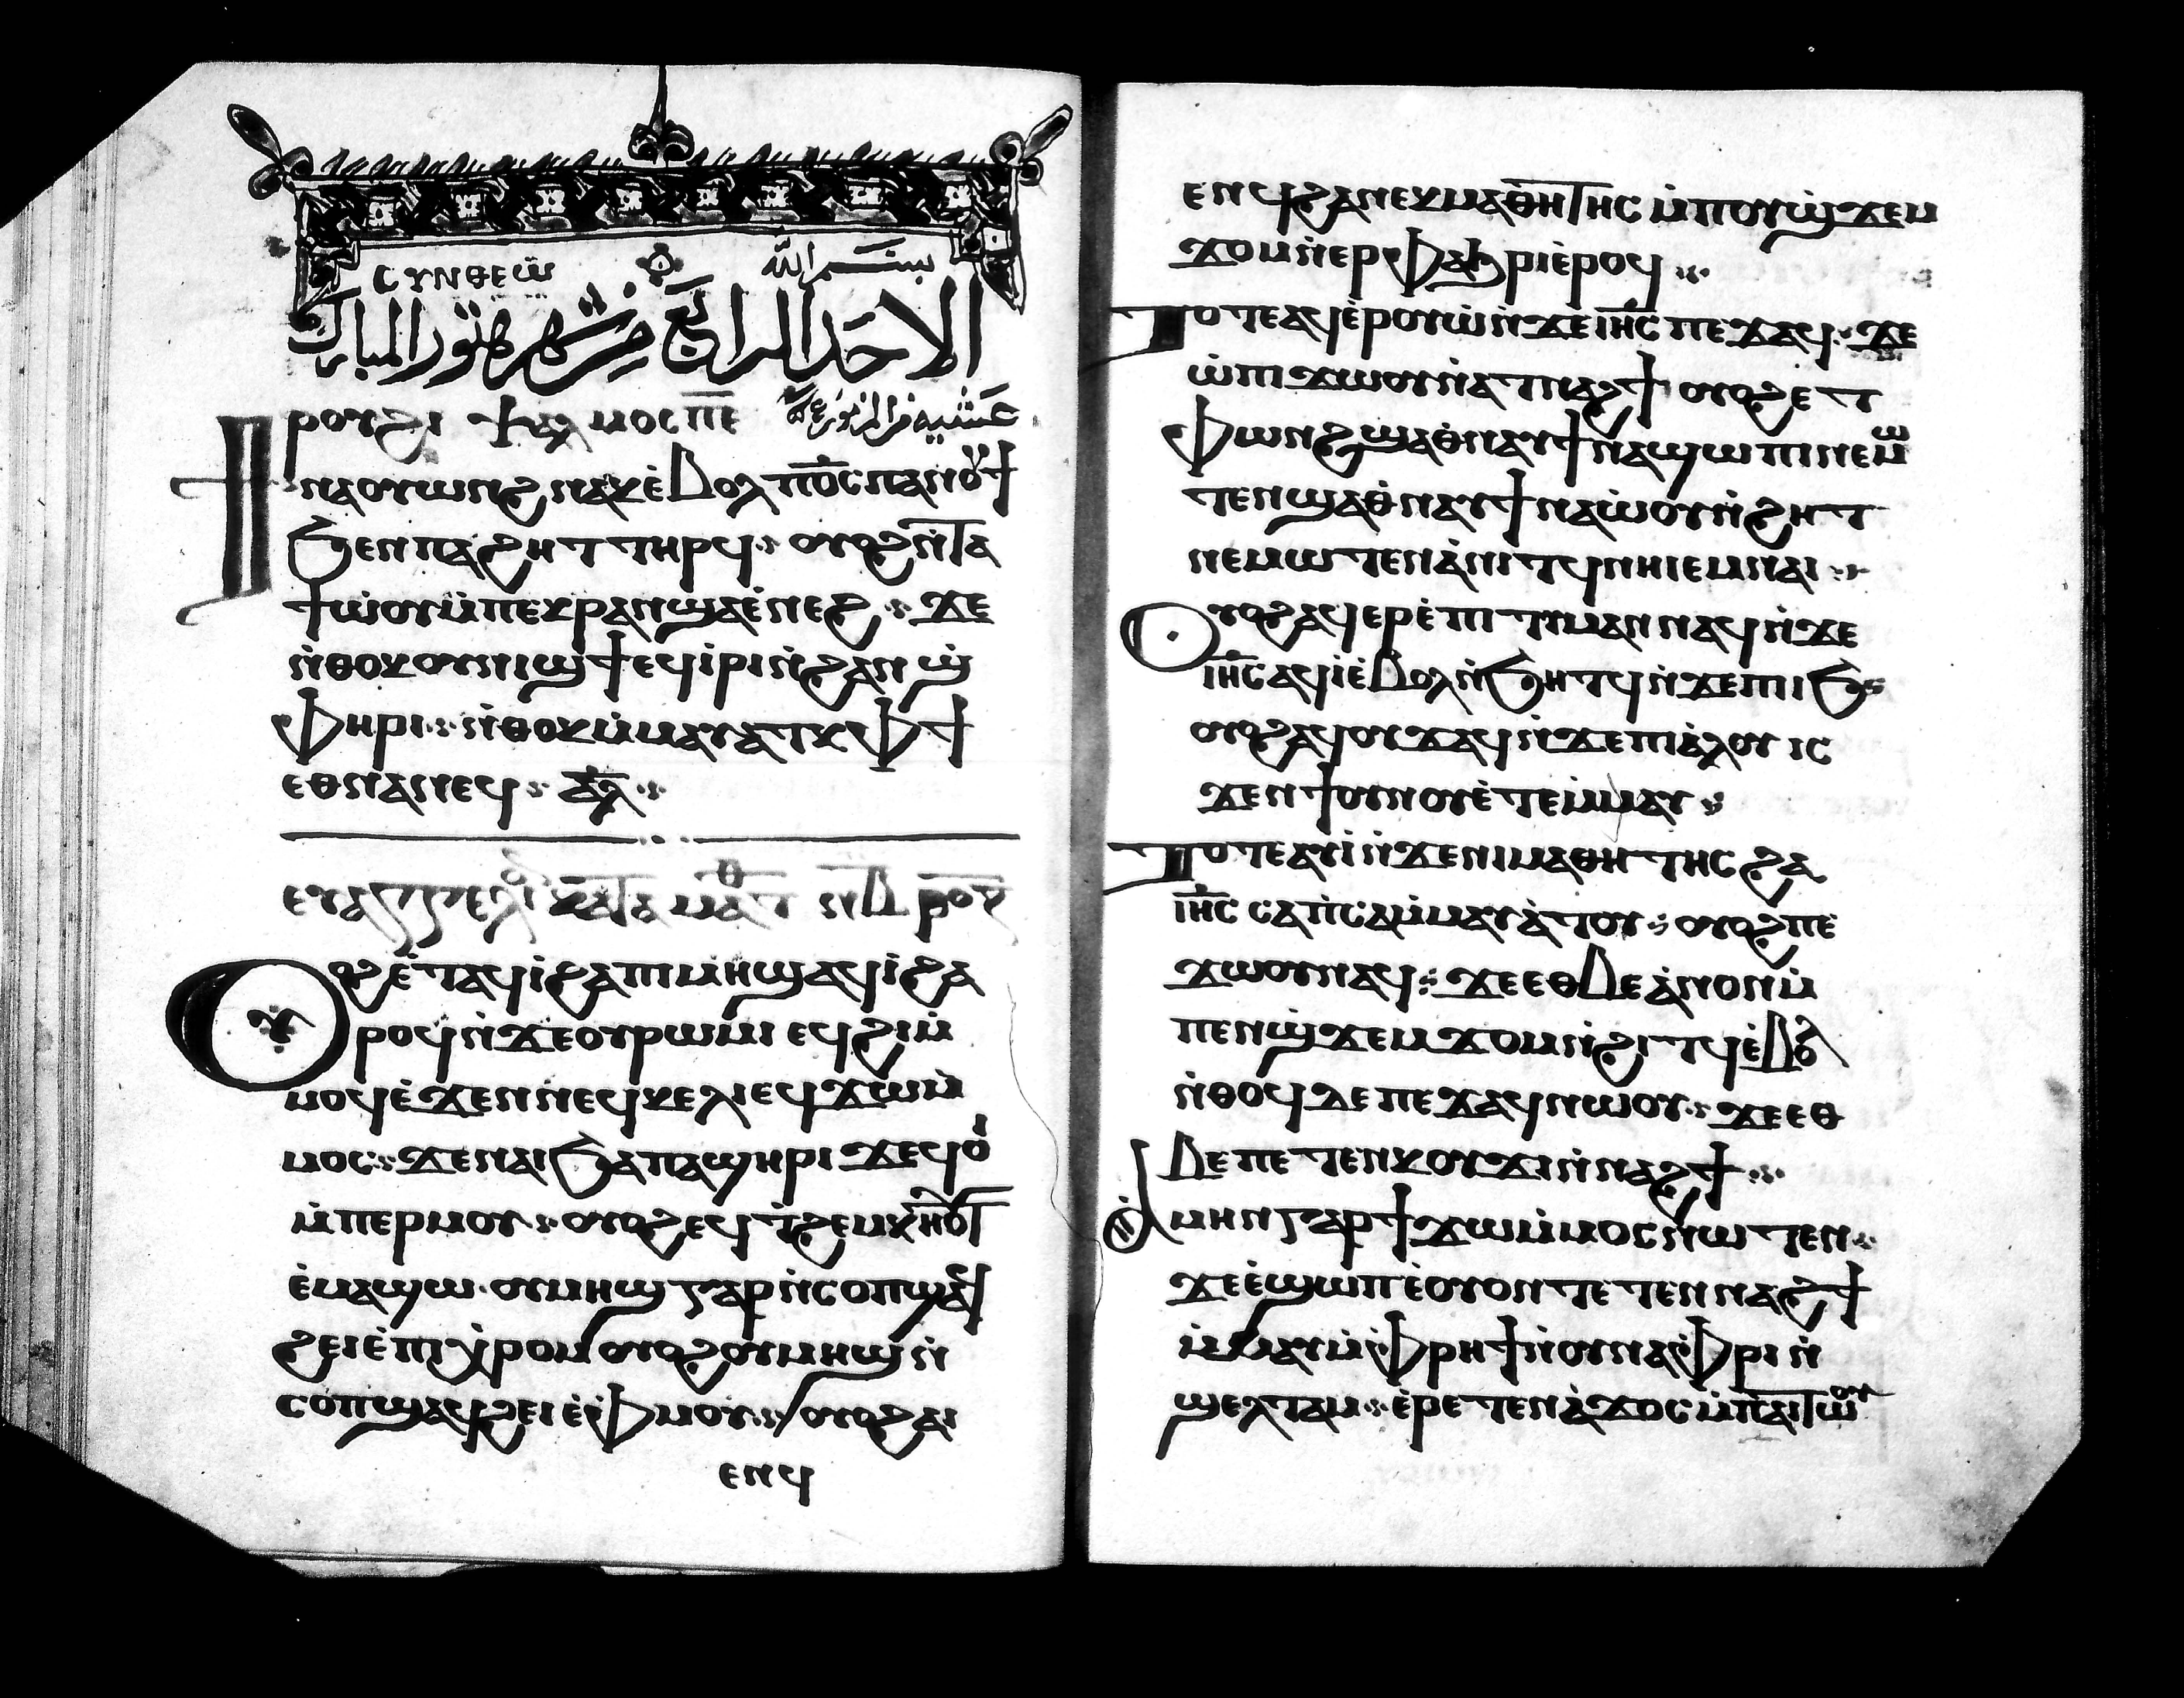 ⲤⲨⲚⲐⲈⲰ بسم الله
الاحد الرابع من شهر هتور المبارك
ⲣⲟⲩϩⲓ ⲯⲁⲗⲙⲟⲥ ⲡ̅ⲉ̅ عشية
ϯⲛⲁⲟⲩⲱⲛϩ ⲛⲁⲕ ⲉ̀ⲃⲟⲗ ⲡ̅ⲟ̅ⲥ̅ ⲡⲁⲛⲟⲩϯ
ϧⲉⲛ ⲡⲁϩⲏⲧ ⲧⲏⲣϥ ⁘ ⲟⲩⲟϩ ⲛ̀ⲧⲁ
ϯⲱ̀ⲟⲩ ⲙ̀ⲡⲉⲕⲣⲁⲛ ϣⲁⲉ̀ⲛⲉϩ ⁘ ϫⲉ
ⲛ̀ⲑⲟⲕ ⲟⲩⲛⲓϣϯ ⲉϥⲓ̀ⲣⲓ ⲛ̀ϩⲁⲛ ϣ̀
ⲫⲏⲣⲓ ⁘ ⲛ̀ⲑⲟⲕ ⲙ̀ⲙⲁⲩⲁⲧⲕ ⲫϯ
ⲉⲑⲛⲁⲛⲉϥ ⁘ ⲁ̅ⲗ̅ ⁘
ⲉⲩⲁⲅⲅⲉⲗⲓ ⲕⲁⲧⲁ ⲙⲁⲧⲑ
ⲟⲩⲟϩ ⲉ̀ⲧⲁϥⲓ̀ ϩⲁ ⲡⲓⲙⲏϣ ⲁϥⲓ̀ ϩⲁ
ⲣⲟϥ ⲛ̀ϫⲉ ⲟⲩⲣⲱⲙⲓ ⲉϥϩⲓⲙ̀
ⲙⲟϥ ⲉ̀ϫⲉⲛ ⲛⲉϥⲕⲉⲗⲓ ⲉϥϫⲱ ⲙ̀
ⲙⲟⲥ ⁘ ϫⲉ ⲛⲁⲓ ϧⲁ ⲡⲁϣⲏⲣⲓ ϫⲉ ϥⲟⲓ̀
ⲙ̀ⲡⲉⲣⲙⲟⲩ ⁘ ⲟⲩⲟϩ ⲉϥⲧ̀ϩⲉⲙⲕⲏⲟⲩⲧ
ⲉ̀ⲙⲁϣⲱ · ⲟⲩⲙⲏϣ ⲅⲁⲣ ⲛ̀ⲥⲟⲡ ϣⲁϥ
ϩⲉⲓ ⲉ̀ⲡⲓⲭ̀ⲣⲱⲙ ⲟⲩⲟϩ ⲟⲩⲙⲏϣ ⲛ̀
ⲥⲟⲡ ϣⲁϥϩⲉⲓ ⲉ̀ⲫ̀ⲙⲱⲟⲩ ⁘ ⲟⲩⲟϩ ⲁⲓ
ⲉⲛϥ
ⲉⲛϥ ϩⲁ ⲛⲉⲕⲙⲁⲑⲏⲧⲏⲥ ⲙ̀ⲡⲟⲩϣ̀ϫⲉⲙ
ϫⲟⲙ ⲛ̀ⲉⲣⲫⲁϧⲣⲓ ⲉ̀ⲣⲟϥ ⁘
ⲧⲟⲧⲉ ⲁϥⲉ̀ⲣⲟⲩⲱ̀ ⲛ̀ϫⲉ ⲓⲏ̅ⲥ̅ ⲡⲉϫⲁϥ ⁘ ϫⲉ
ⲱ̀ ⲡⲓϫⲱⲟⲩ ⲛ̀ⲁⲧⲛⲁϩϯ ⲟⲩⲟϩ ⲉⲧ
ⲫⲱⲛϩ ϣⲁⲑ̀ⲛⲁⲩ ϯⲛⲁϣⲱⲡⲓ ⲛⲉⲙⲱ
ⲧⲉⲛ ϣⲁⲑ̀ⲛⲁⲩ ϯⲛⲁⲱ̀ⲟⲩⲛ̀ϩⲏⲧ
ⲛⲉⲙⲱⲧⲉⲛ ⲁ̀ⲛⲓⲧϥ ⲛⲏⲓ ⲉⲙⲛⲁⲓ ⁘
ⲟⲩⲟϩ ⲁϥⲉⲣⲉ̀ⲡⲓⲧⲓⲙⲁⲛ ⲛⲁϥ ⲛ̀ϫⲉ
ⲓⲏ̅ⲥ̅ ⲁϥⲓ̀ ⲉ̀ⲃⲟⲗ ⲛ̀ϧⲏⲧϥ ⲛ̀ϫⲉ ⲡⲓϧ
ⲟⲩⲟϩ ⲁϥⲟⲩϫⲁⲓ ⲛ̀ϫⲉ ⲡⲓⲁ̀ⲗⲟⲩ ⲓⲥ
ϫⲉⲛ ϯⲟⲩⲛⲟⲩ ⲉ̀ⲧⲉⲙ̀ⲙⲁⲩ ⁘
ⲧⲟⲧⲉ ⲁⲩⲓ̀ ⲛ̀ϫⲉ ⲛⲓⲙⲁⲑⲏⲧⲏⲥ ϩⲁ
ⲓⲏ̅ⲥ̅ ⲥⲁⲡ̀ⲥⲁ ⲙ̀ⲙⲁⲩⲁ̀ⲧⲟⲩ ⁘ ⲟⲩⲟϩ ⲡⲉ
ϫⲱⲟⲩ ⲛⲁϥ ⁘ ϫⲉ ⲉⲑⲃⲉ ⲁ̀ⲛⲟⲛ ⲙ̀
ⲡⲉⲛϣ̀ϫⲉⲙϫⲟⲙ ⲛ̀ϩⲓⲧϥ ⲉ̀ⲃⲟⲗ
ⲛ̀ⲑⲟϥ ⲇⲉ ⲡⲉϫⲁϥ ⲛⲱⲟⲩ ⁘ ϫⲉ ⲉⲑ
ⲃⲉ ⲡⲉⲧⲉⲛⲕⲟⲩϫⲓ ⲛ̀ⲛⲁϩϯ ⁘
ⲁ̀ⲙⲏⲛ ⲅⲁⲣ ϯϫⲱ ⲙ̀ⲙⲟⲥ ⲛⲱⲧⲉⲛ ⁘
ϫⲉ ⲉ̀ϣⲱⲡ ⲉ̀ⲟⲩⲟⲛⲧⲉⲧⲉⲛ ⲛⲁϩϯ
ⲙ̀ⲙⲁⲩ ⲙ̀ⲫ̀ⲣⲏϯ ⲛ̀ⲟⲩⲛⲁⲫ̀ⲣⲓ ⲛ̀
ϣⲉⲗⲧⲁⲙ ⁘ ⲉ̀ⲣⲉⲧⲉⲛⲁ̀ϫⲟⲥ ⲙ̀ⲡⲁⲓⲧⲱⲟⲩ